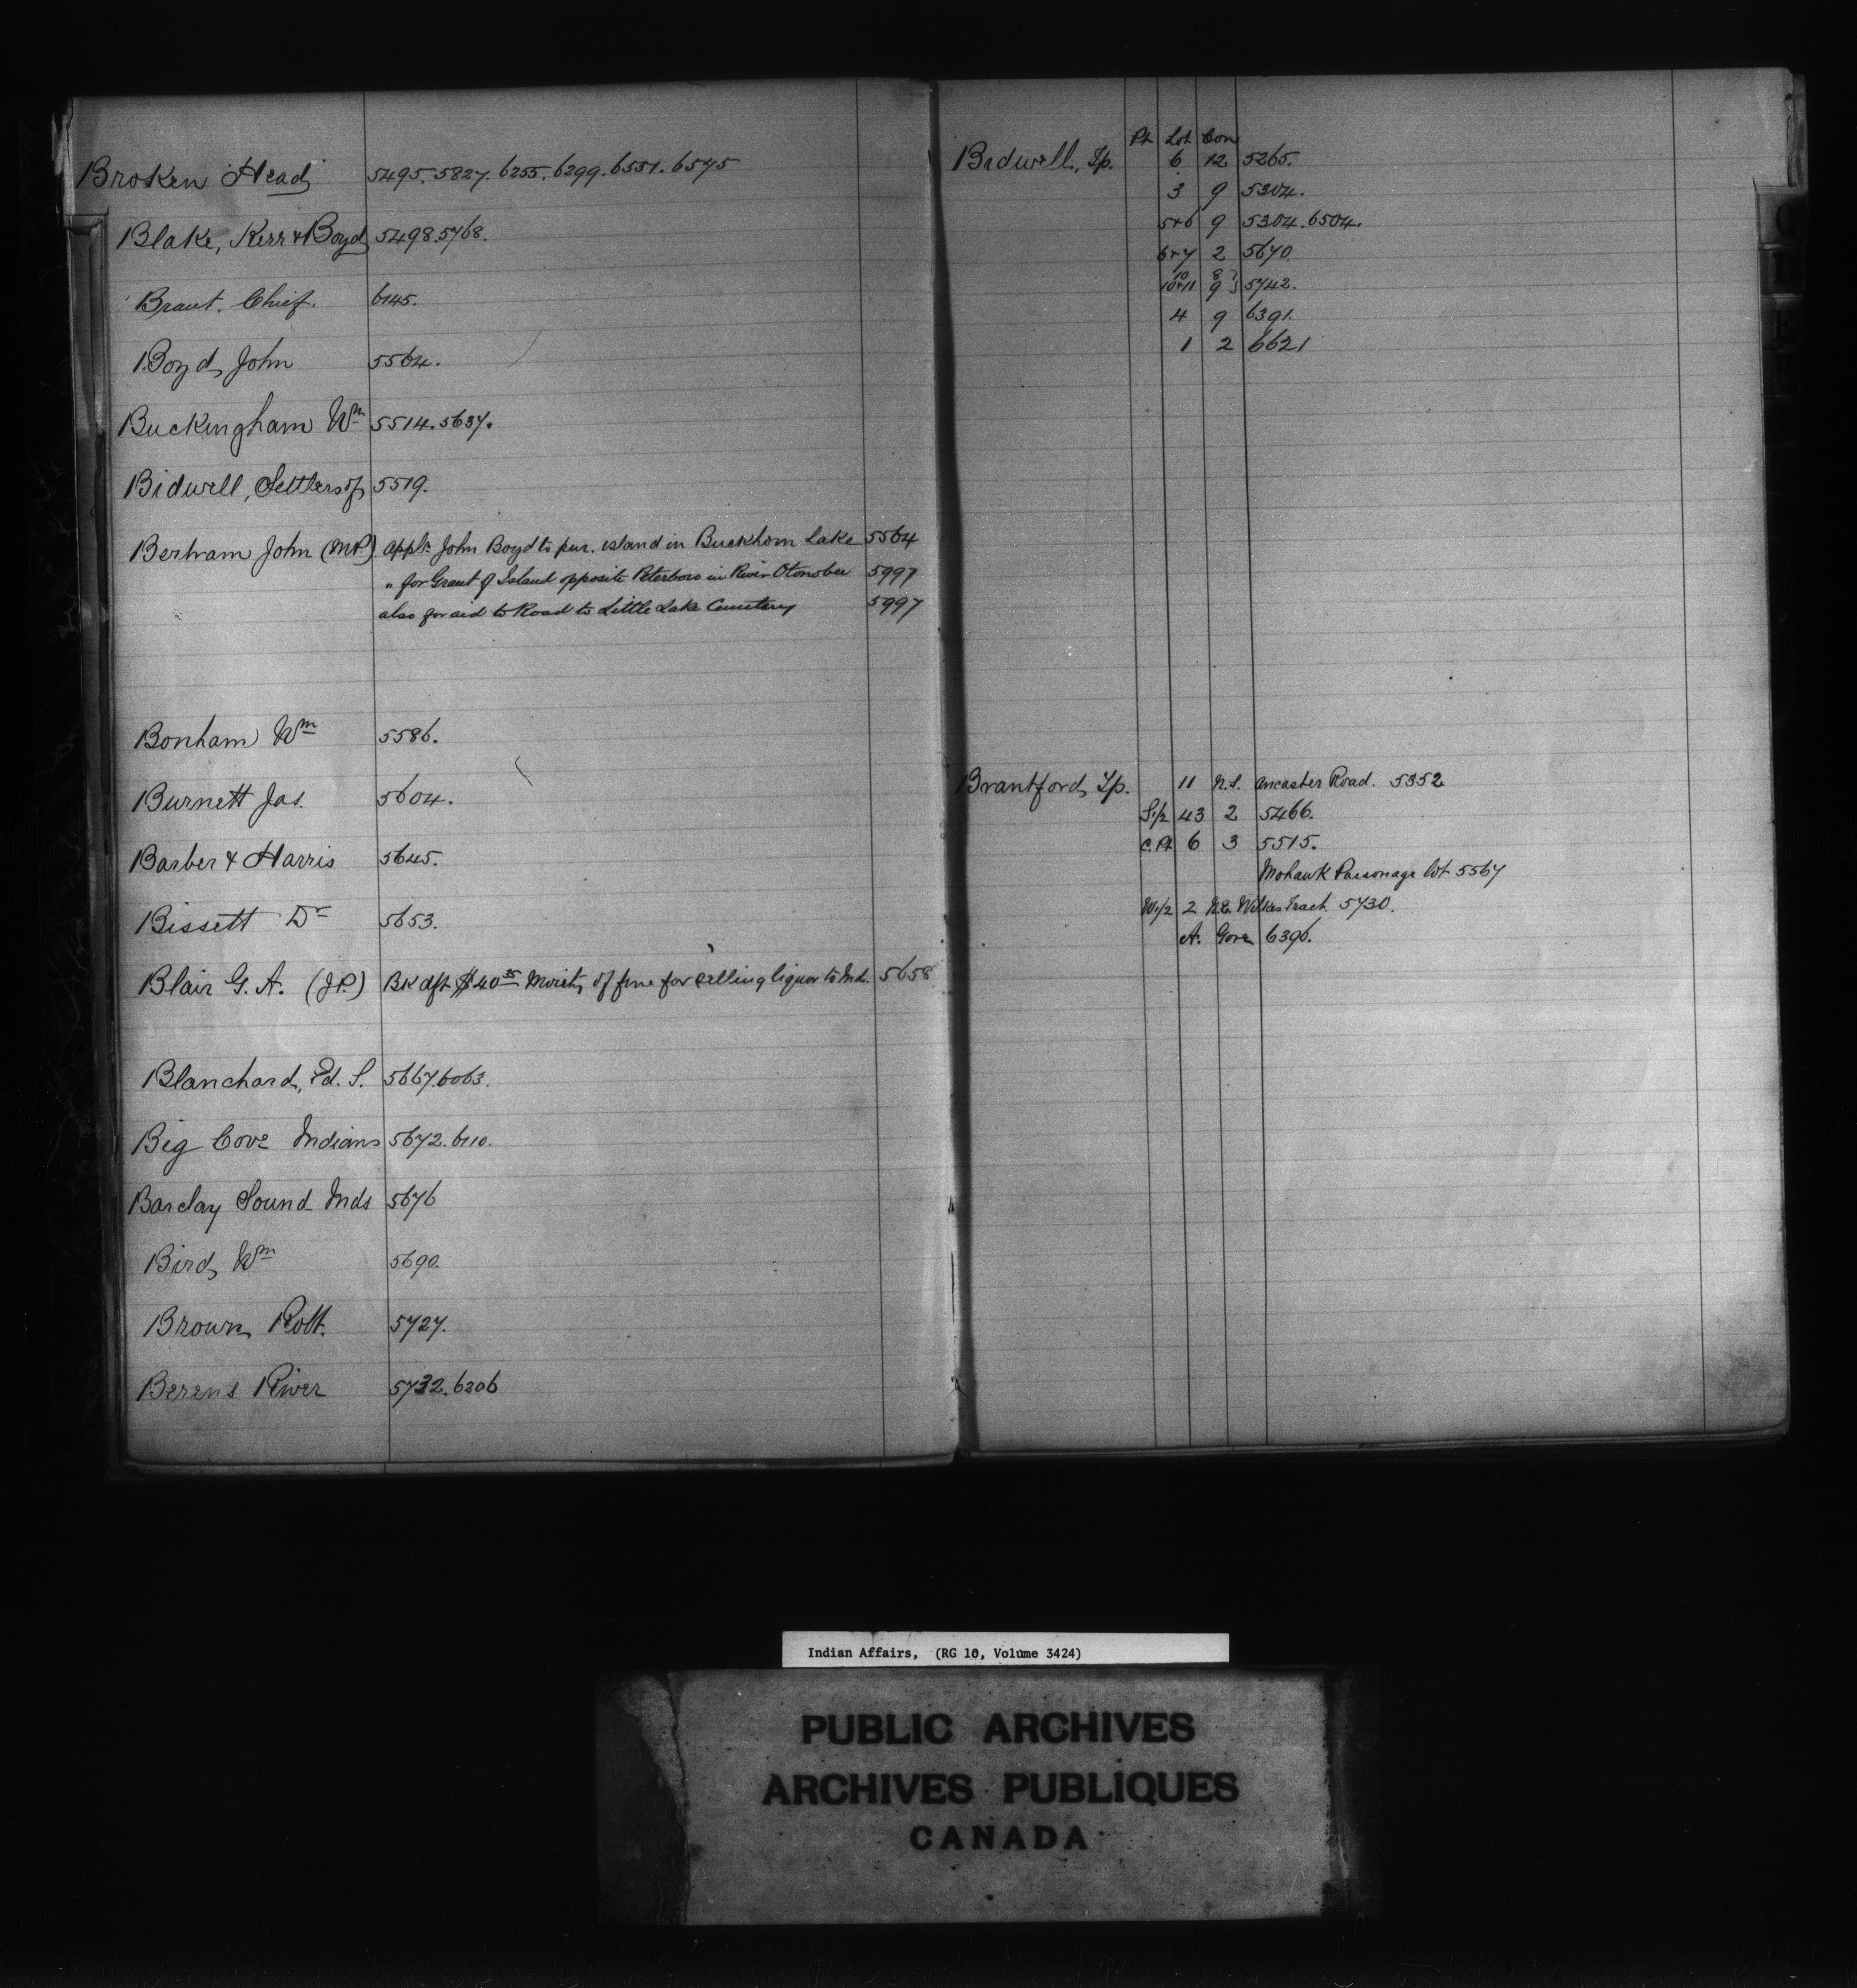 Broken Head 5495. 5827. 6255. 6299. 6551. 6575
Blake, Kerr & Boyd 5498. 5768.
Brant. Chief. 6145.
Boyd, John 5564.
Buckingham Wm 5514. 5637.
Bidwell, Settlers of 5519.
Bertram John (M.P.) Appln John Boyd to pur. island in Buckhorn Lake 5564
" for Grant of Island opposite Peterboro in River Otonobee 5997
also for aid to Road to Little Lake Cemetery 5997
Bonham Wm 5586.
Burnett Jas. 5604.
Barber & Harris 5645.
Bissett Dr 5653.
Blair G. A. (J.P.) Bk dft $40 35 Moiety of fine for selling liquor to Ind. 5658
Blanchard, Ed. S. 5667. 6063.
Big Cove Indians 5672. 6110.
Barclay Sound Inds 5676
Bird, Wm 5690.
Brown, Robt. 5727.
Berens River 5732. 6206
Pt Lot Con
Bidwell, Tp. 6 12 5265.
3 9 5304.
5+6 9 5304. 6504.
6+7 2 5670
10 8 }
10+11 9 } 5742.
4 9 6391.
1 2 6621
Brantford, Tp. 11 N.S. Ancaster Road. 5352
S.1/2 43 2 5466.
C. Pt 6 3 5515.
Mohawk Parsonage lot 5567
W.1/2 2 Wilkes Tract. 5730.
A. Gore 6396.
Indian Affairs, (RG 10, Volume 3424)
PUBLIC ARCHIVES
ARCHIVES PUBLIQUES
CANADA